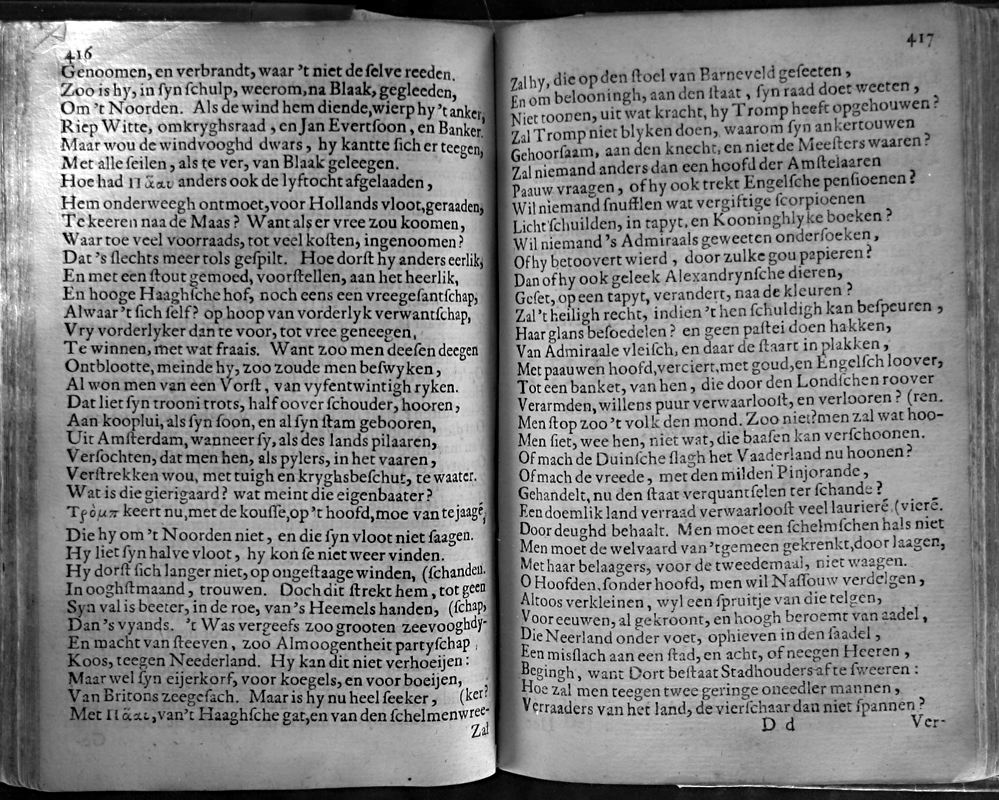 416
Genoomen, en verbrandt, waar 't niet de ſelve reeden.
Zoo is hy, in ſyn ſchulp, weerom, na Blaak, gegleeden,
Om 't Noorden. Als de wind hem diende, wierp hy 't anker,
Riep Witte, om kryghsraad, en Jan Evertſoon, en Banker.
Maar wou de wind vooghd dwars, hy kantte ſich er teegen,
Met alle ſeilen, als te ver, van Blaak geleegen.
Hoe had Πᾶαυ anders ook de lyftocht afgelaaden,
Hem onderweegh ontmoet, voor Hollands vloot, geraaden,
Te keeren naa de Maas? Want als er vree zou koomen,
Waar toe veel voorraads, tot veel koſten, ingenoomen?
Dat 's ſlechts meer tols geſpilt. Hoe dorſt hy anders eerlik,
En met een ſtout gemoed, voorſtellen, aan het heerlik,
En hooge Haaghſche hof, noch eens een vreegeſantſchap,
Alwaar 't ſich ſelf? op hoop van vorderlyk verwantſchap,
Vry vorderlyker dan te voor, tot vree geneegen,
Te winnen, met wat fraais. Want zoo men deeſen deegen
Ontblootte, meinde hy, zoo zoude men beſwyken,
Al won men van een Vorſt, van vyfentwintigh ryken.
Dat liet ſyn trooni trots, half oover ſchouder, hooren,
Aan kooplui, als ſyn ſoon, en al ſyn ſtam gebooren,
Uit Amſterdam, wanneer ſy, als des lands pilaaren,
Verſochten, dat men hen, als pylers, in het vaaren,
Verſtrekken wou, met tuigh en kryghsbeſchut, te waater.
Wat is die gierigaard? wat meint die eigenbaater?
Τρὸμπ keert nu, met de kouſſe, op 't hoofd, moe van te jaagē,
Die hy om 't Noorden niet, en die ſyn vloot niet ſaagen.
Hy liet ſyn halve vloot, hy kon ſe niet weer vinden.
Hy dorſt ſich langer niet, op ongeſtaage winden, (ſchanden.
In ooghſtmaand, trouwen. Doch dit ſtrekt hem, tot geen
Syn val is beeter, in de roe, van 's Heemels handen, (ſchap,
Dan 's vyands. 't Was vergeefs zoo grooten zeevooghdy-
En macht van ſteeven, zoo Almoogentheit partyſchap
Koos, teegen Neederland. Hy kan dit niet verhoeijen:
Maar wel ſyn eijerkorf, voor koegels, en voor boeijen,
Van Britons zeegeſach. Maar is hy nu heel ſeeker, (ker?
Met Πᾶαυ, van 't Haaghſche gat, en van den ſchelmen wree-
Zal
417
Zal hy, die op den ſtoel van Barneveld geſeeten,
En om belooningh, aan den ſtaat, ſyn raad doet weeten,
Niet toonen, uit wat kracht, hy Tromp heeft opgehouwen?
Zal Tromp niet blyken doen, waarom ſyn ankertouwen
Gehoorſaam, aan den knecht, en niet de Meeſters waaren?
Zal niemand anders dan een hoofd der Amſtelaaren
Paauw vraagen, of hy ook trekt Engelſche penſioenen?
Wil niemand ſnufflen wat vergiftige ſcorpioenen
Licht ſchuilden, in tapyt, en Kooninghlyke boeken?
Wil niemand 's Admiraals geweeten onderſoeken,
Of hy betoovert wierd, door zulke gou papieren?
Dan of hy ook geleek Alexandrynſche dieren,
Geſet, op een tapyt, verandert, naa de kleuren?
Zal 't heiligh recht, indien 't hen ſchuldigh kan beſpeuren,
Haar glans beſoedelen? en geen paſtei doen hakken,
Van Admiraale vleiſch, en daar de ſtaart in plakken,
Met paauwen hoofd, verciert, met goud, en Engelſch loover,
Tot een banket, van hen, die door den Londſchen roover
Verarmden, willens puur verwaarlooſt, en verlooren? (ren.
Men ſtop zoo 't volk den mond. Zoo niet? men zal wat hoo-
Men ſiet, wee hen, niet wat, die baaſen kan verſchoonen.
Of mach de Duinſche ſlagh het Vaaderland nu hoonen?
Of mach de vreede, met den milden Pinjorande,
Gehandelt, nu den ſtaat verquantſelen ter ſchande?
Een doemlik land verraad verwaarlooſt veel laurierē (vierē.
Door deughd behaalt. Men moet een ſchelmſchen hals niet
Men moet de welvaard van 't gemeen gekrenkt, door laagen,
Met haar belaagers, voor de tweedemaal, niet waagen.
O Hoofden, ſonder hoofd, men wil Naſſouw verdelgen,
Altoos verkleinen, wyl een ſpruitje van die telgen,
Voor eeuwen, al gekroont, en hoogh beroemt van aadel,
Die Neerland onder voet, ophieven in den ſaadel,
Een miſlach aan een ſtad, en acht, of neegen Heeren,
Begingh, want Dort beſtaat Stadhouders af te ſweeren:
Hoe zal men teegen twee geringe oneedler mannen,
Verraaders van het land, de vierſchaar dan niet ſpannen?
D d
Ver-